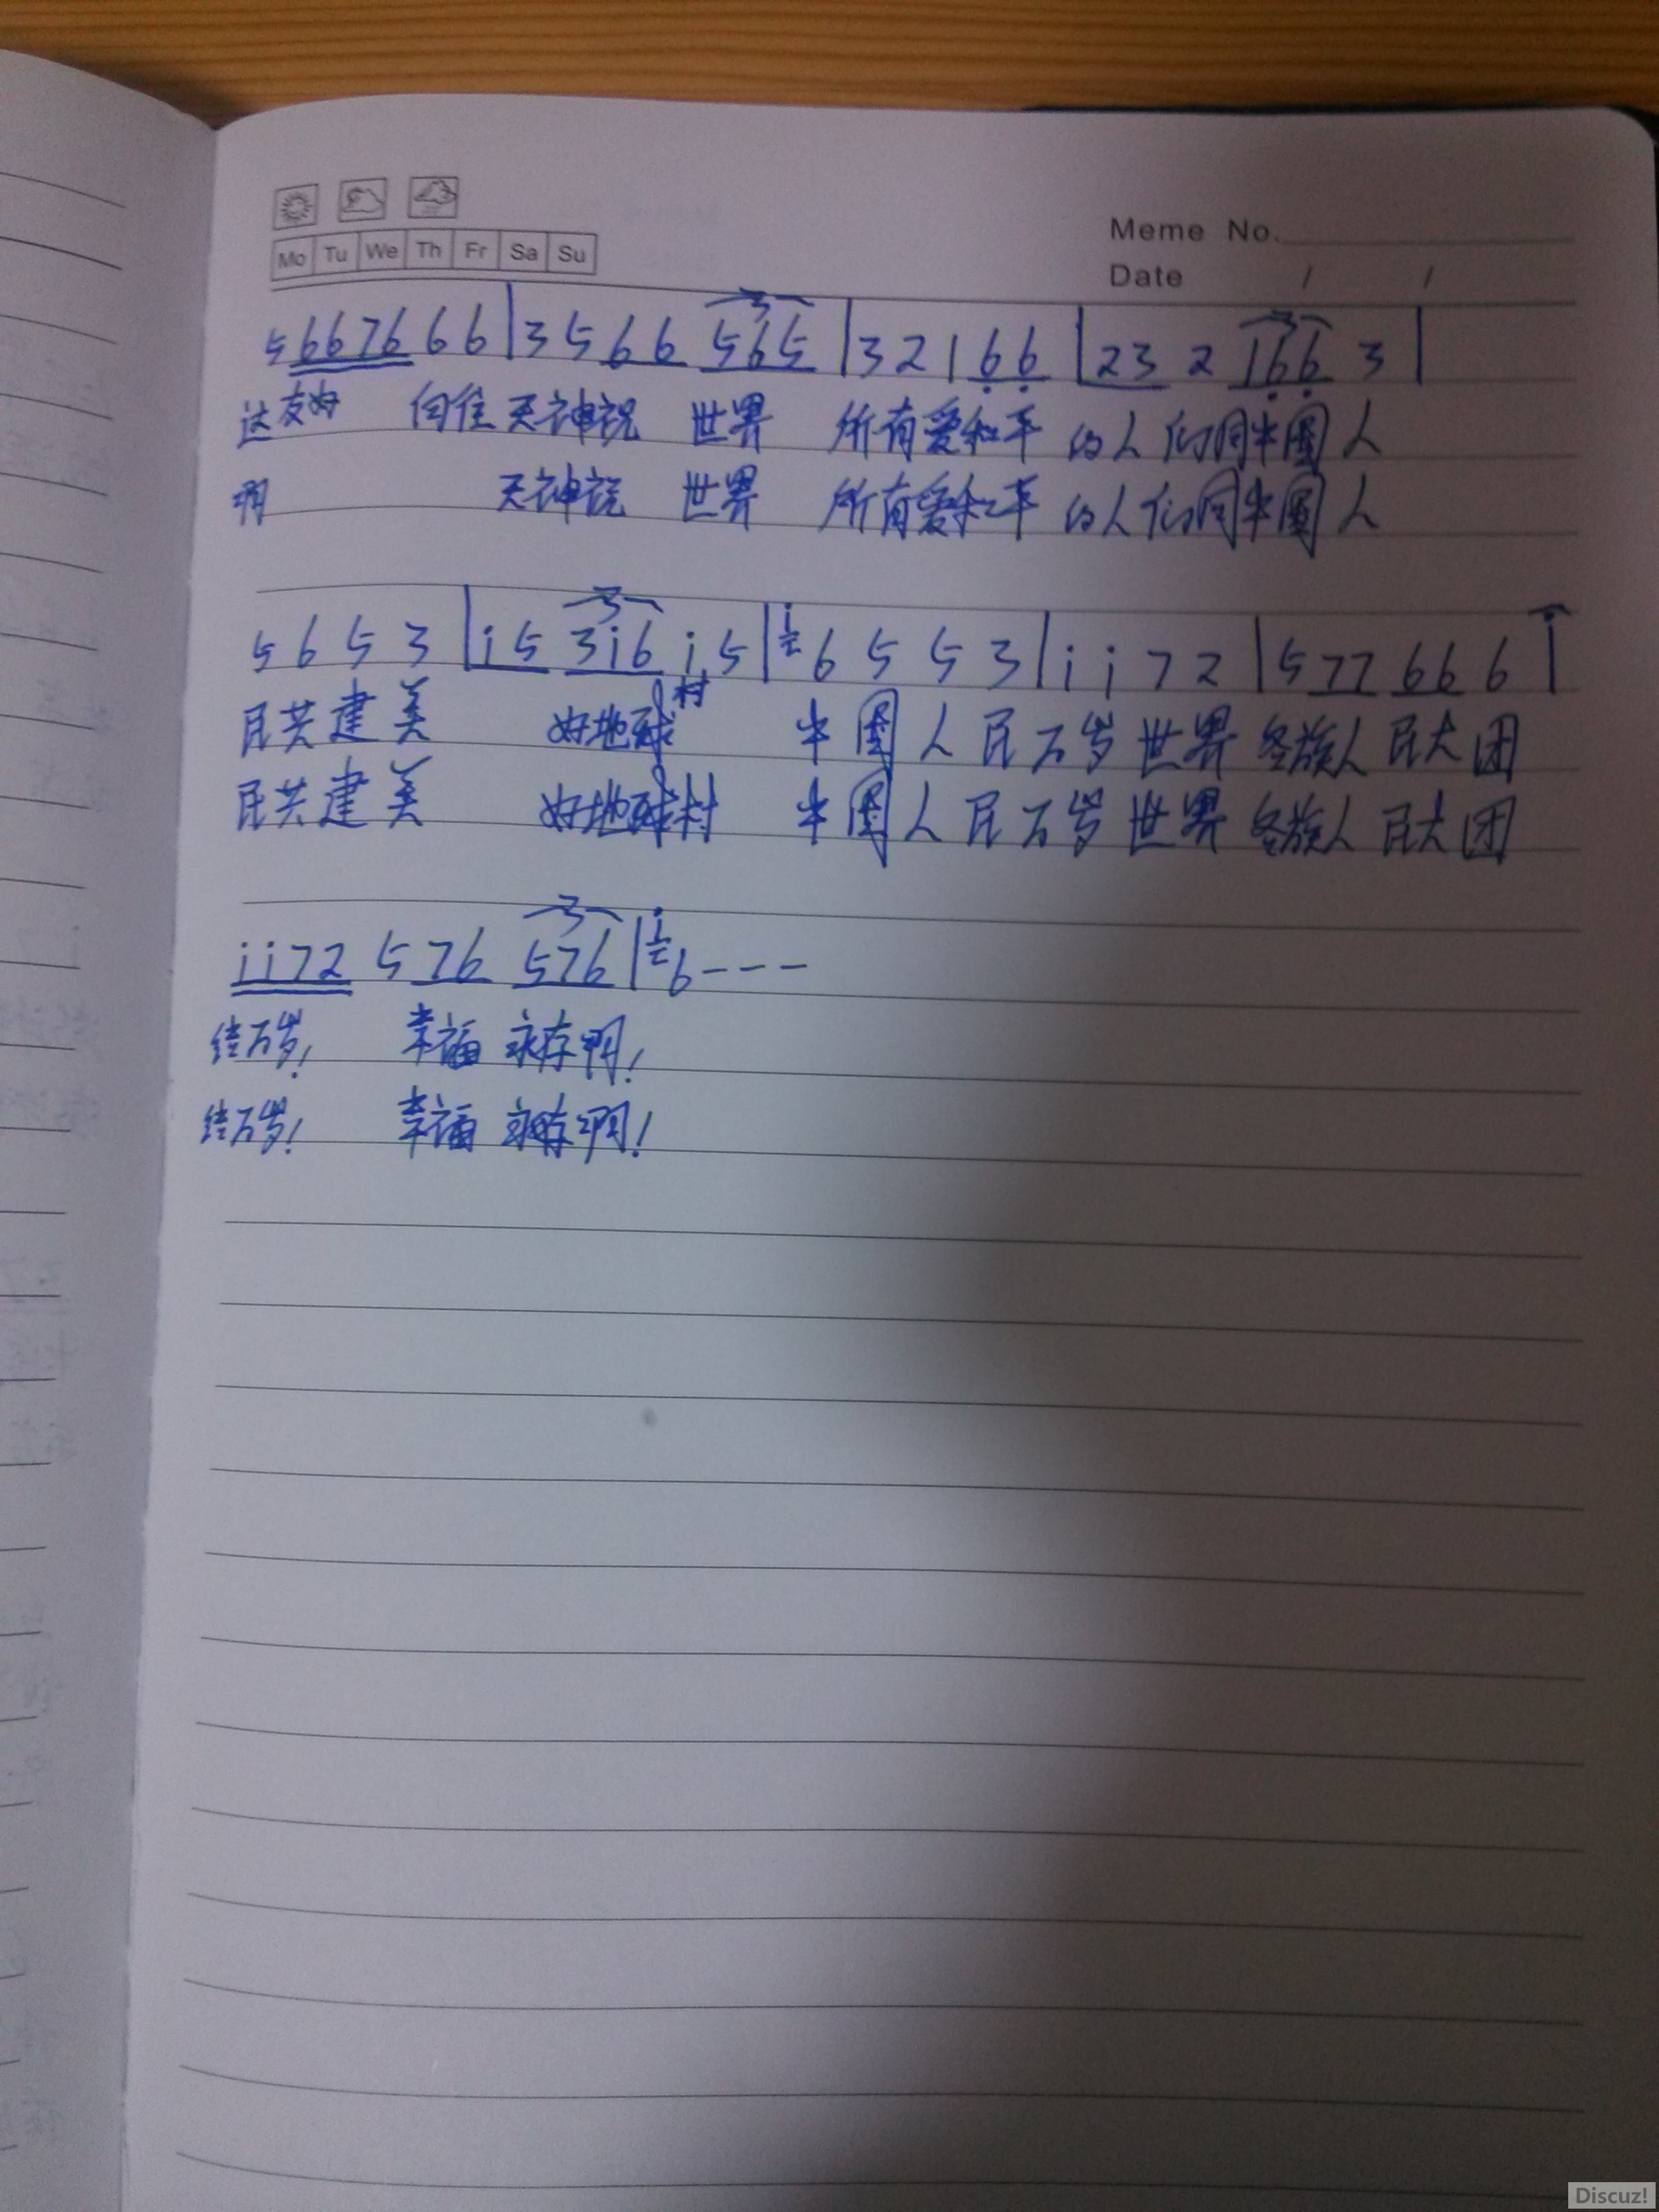 Mo Tu We Th Fr Sa Su
Meme No.
Date / /
5 6676 6 6 | 3 5 66 565 | 3 2 1 66 | 23 2 166 3 |
这友好 向往天神祝 世界 所有爱和平 的人们同中国人
啊 天神说 世界 所有爱和平 的人们同中国人
5 6 5 3 | i5 3i6 i 5 | 6 5 5 3 | i i 7 2 | 5 77 66 6 i
民共建美 好地球村 中国人民万岁世界各族人民大团
民共建美 好地球村 中国人民万岁世界各族人民大团
ii72 5 76 576 | 6 - - -
结万岁! 幸福 永存啊!
结万岁! 幸福 永存啊!
Discuz!